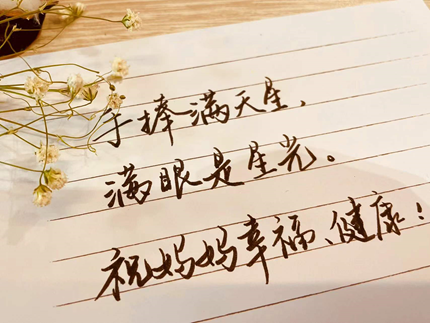 手捧满天星，
满眼是星光。
祝妈妈幸福、健康！